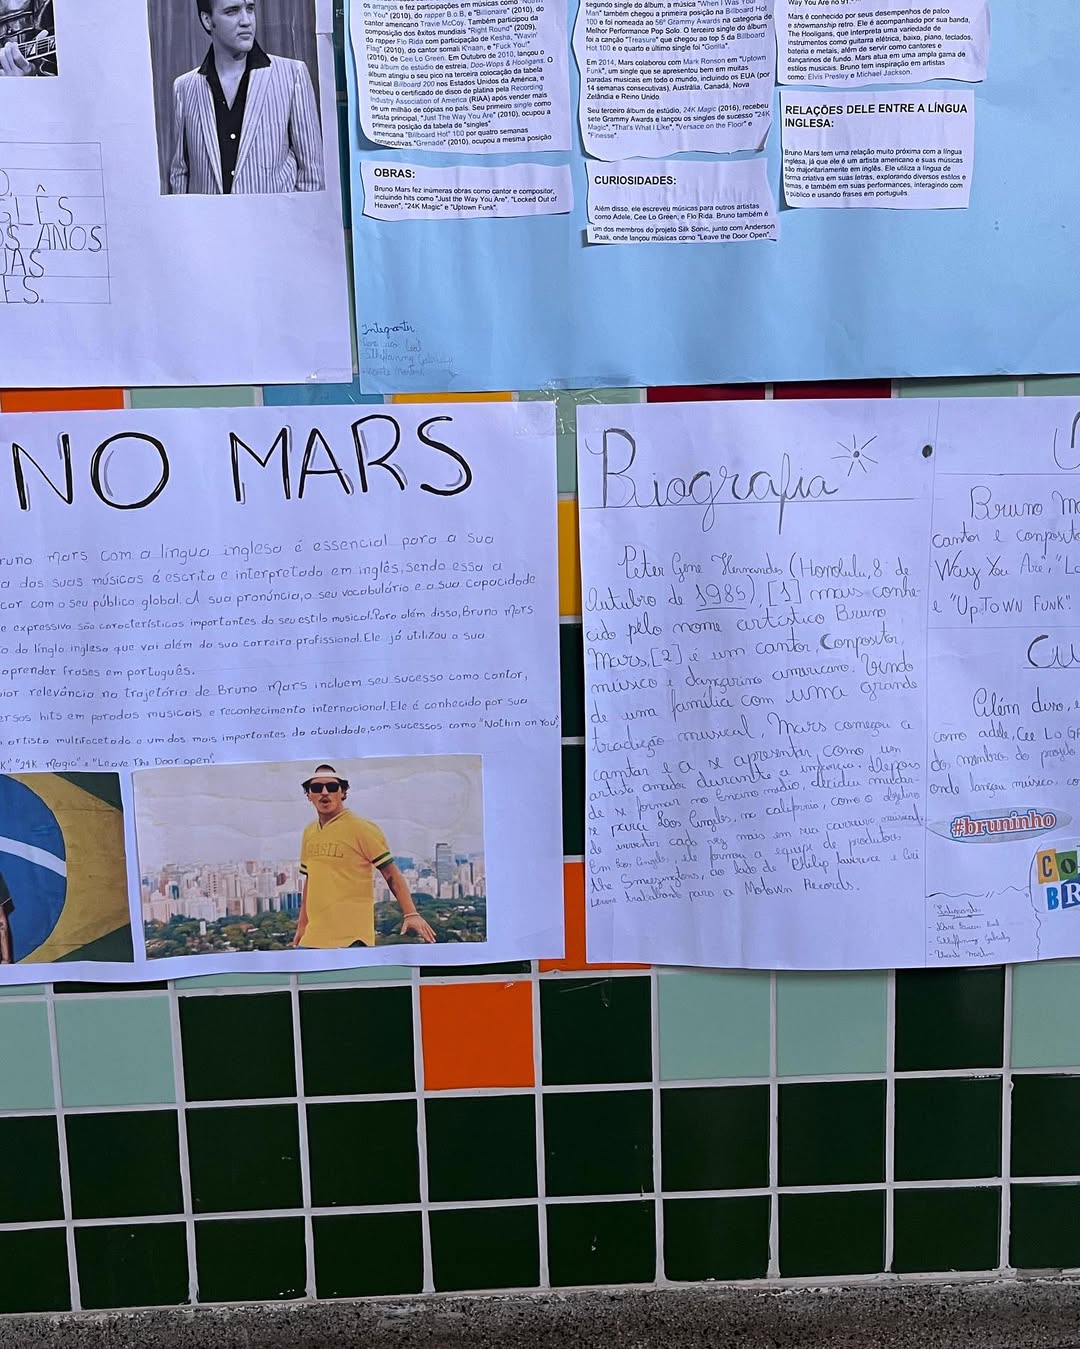 os arranjos e fez participações em músicas como "Nothin'
on You" (2010), do rapper B.o.B, e "Billionaire" (2010), do
cantor americano Travie McCoy. Também participou da
composição dos êxitos mundiais "Right Round" (2009),
do rapper Flo Rida com participação de Kesha, "Wavin'
Flag" (2010), do cantor somali K'naan, e "Fuck You!"
(2010), de Cee Lo Green. Em Outubro de 2010, lançou o
seu álbum de estúdio de estreia, Doo-Wops & Hooligans. O
álbum atingiu o seu pico na terceira colocação da tabela
musical Billboard 200 nos Estados Unidos da América, e
recebeu o certificado de disco de platina pela Recording
Industry Association of America (RIAA) após vender mais
de um milhão de cópias no país. Seu primeiro single como
artista principal, "Just The Way You Are" (2010), ocupou a
primeira posição da tabela de "singles"
americana "Billboard Hot" 100 por quatro semanas
consecutivas."Grenade" (2010), ocupou a mesma posição
OBRAS:
Bruno Mars fez inúmeras obras como cantor e compositor,
incluindo hits como "Just the Way You Are". "Locked Out of
Heaven", "24K Magic" e "Uptown Funk".
segundo single do álbum, a música "When I Was Your
Man" também chegou a primeira posição na Billboard Hot
100 e foi nomeada ao 56º Grammy Awards na categoria de
Melhor Performance Pop Solo. O terceiro single do álbum
foi a canção "Treasure" que chegou ao top 5 da Billboard
Hot 100 e o quarto e último single foi "Gorilla".
Em 2014, Mars colaborou com Mark Ronson em "Uptown
Funk", um single que se apresentou bem em muitas
paradas musicais em todo o mundo, incluindo os EUA (por
14 semanas consecutivas), Austrália, Canadá, Nova
Zelândia e Reino Unido.
Seu terceiro álbum de estúdio, 24K Magic (2016), recebeu
sete Grammy Awards e lançou os singles de sucesso "24K
Magic", "That's What I Like", "Versace on the Floor" e
"Finesse".
CURIOSIDADES:
Além disso, ele escreveu músicas para outros artistas
como Adele, Cee Lo Green, e Flo Rida. Bruno também é
um dos membros do projeto Silk Sonic, junto com Anderson
Paak, onde lançou músicas como "Leave the Door Open".
Way You Are no 91.
Mars é conhecido por seus desempenhos de palco
e showmanship retro. Ele é acompanhado por sua banda,
The Hooligans, que interpreta uma variedade de
instrumentos como guitarra elétrica, baixo, piano, teclados,
bateria e metais, além de servir como cantores e
dançarinos de fundo. Mars atua em uma ampla gama de
estilos musicais. Bruno tem inspiração em artistas
como: Elvis Presley e Michael Jackson.
RELAÇÕES DELE ENTRE A LÍNGUA
INGLESA:
Bruno Mars tem uma relação muito próxima com a língua
inglesa, já que ele é um artista americano e suas músicas
são majoritariamente em inglês. Ele utiliza a língua de
forma criativa em suas letras, explorando diversos estilos e
temas, e também em suas performances, interagindo com
o público e usando frases em português.
GLÊS
OS ANOS
UAS
ES.
Integrantes
NO MARS
runo Mars com a língua inglesa é essencial para a sua
a das suas músicas é escrita e interpretada em inglês, sendo essa a
car com o seu público global. A sua pronúncia, o seu vocabulário e a sua capacidade
e expressiva são características importantes do seu estilo musical. Para além disso, Bruno Mars
o da línglo inglesa que vai além da sua carreira profissional. Ele já utilizou a sua
aprender frases em português.
ior relevância na trajetória de Bruno Mars incluem seu sucesso como cantor,
ersos hits em paradas musicais e reconhecimento internacional. Ele é conhecido por sua
artista multifacetado e um dos mais importantes da atualidade, com sucessos como "Nothin on You",
K", "24K Magic" e "Leave The Door open".
BRASIL
Biografia
Peter Gene Hernandes (Honolulu, 8 de
Outubro de 1985), [1] mais conhe-
cido pelo nome artístico Bruno
Mars, [2] é um cantor, Conpositor,
músico e dançarino americano. Vindo
de uma família com uma grande
tradição musical, Mars começou a
cantar e a se apresentar como um
artista amador durante a infância. Depois
de se formar no Encino médio, decidiu mudar-
se para Los Angeles, na califórnia, como o objetivo
de investir cada vez mais em sua carreira musical.
Em Los Angeles, ele formou a equipe de produtores
the Smeezingtons, ao lado de Philip Lawrence e
Levine trabalhando para a Motown Records.
Bruno Ma
cantor e conposito
Way You Are", "Lo
e "UPTOWN FUNK".
CU
Além disso, e
como adele, Cee Lo G
dos membros do projeto
onde lançou músicas, co
#bruninho
CO
BR
Integrantes